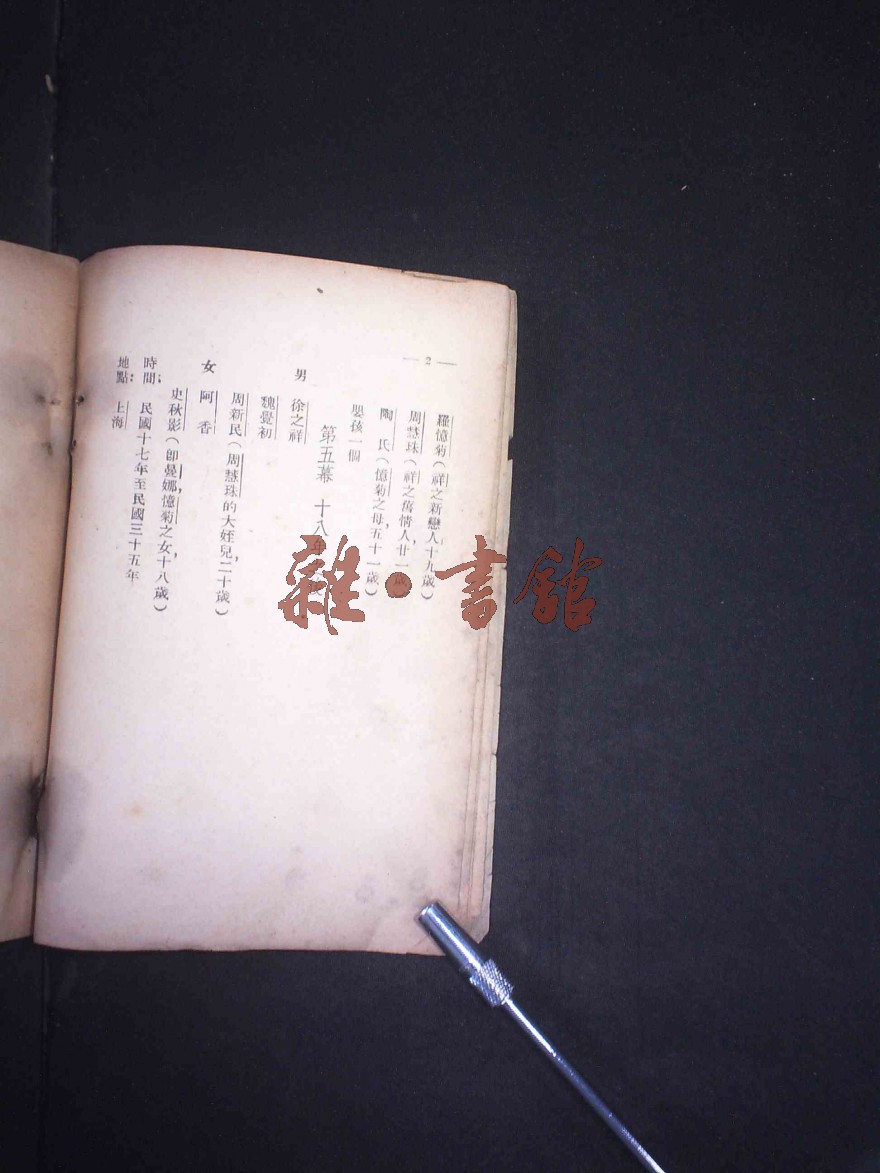 — 2 —
羅憶菊（祥之新戀人十九歲）
周慧珠（祥之舊情人廿一歲）
陶　氏（憶菊之母，五十一歲）
嬰孩一個
第五幕　十八年
男　徐之祥
魏覺初
周新民（周慧珠的大姪兒二十歲）
女　阿　香
史秋影（卽曼娜，憶菊之女，十八歲）
時間：民國十七年至民國三十五年
地點：上海
雜·書館